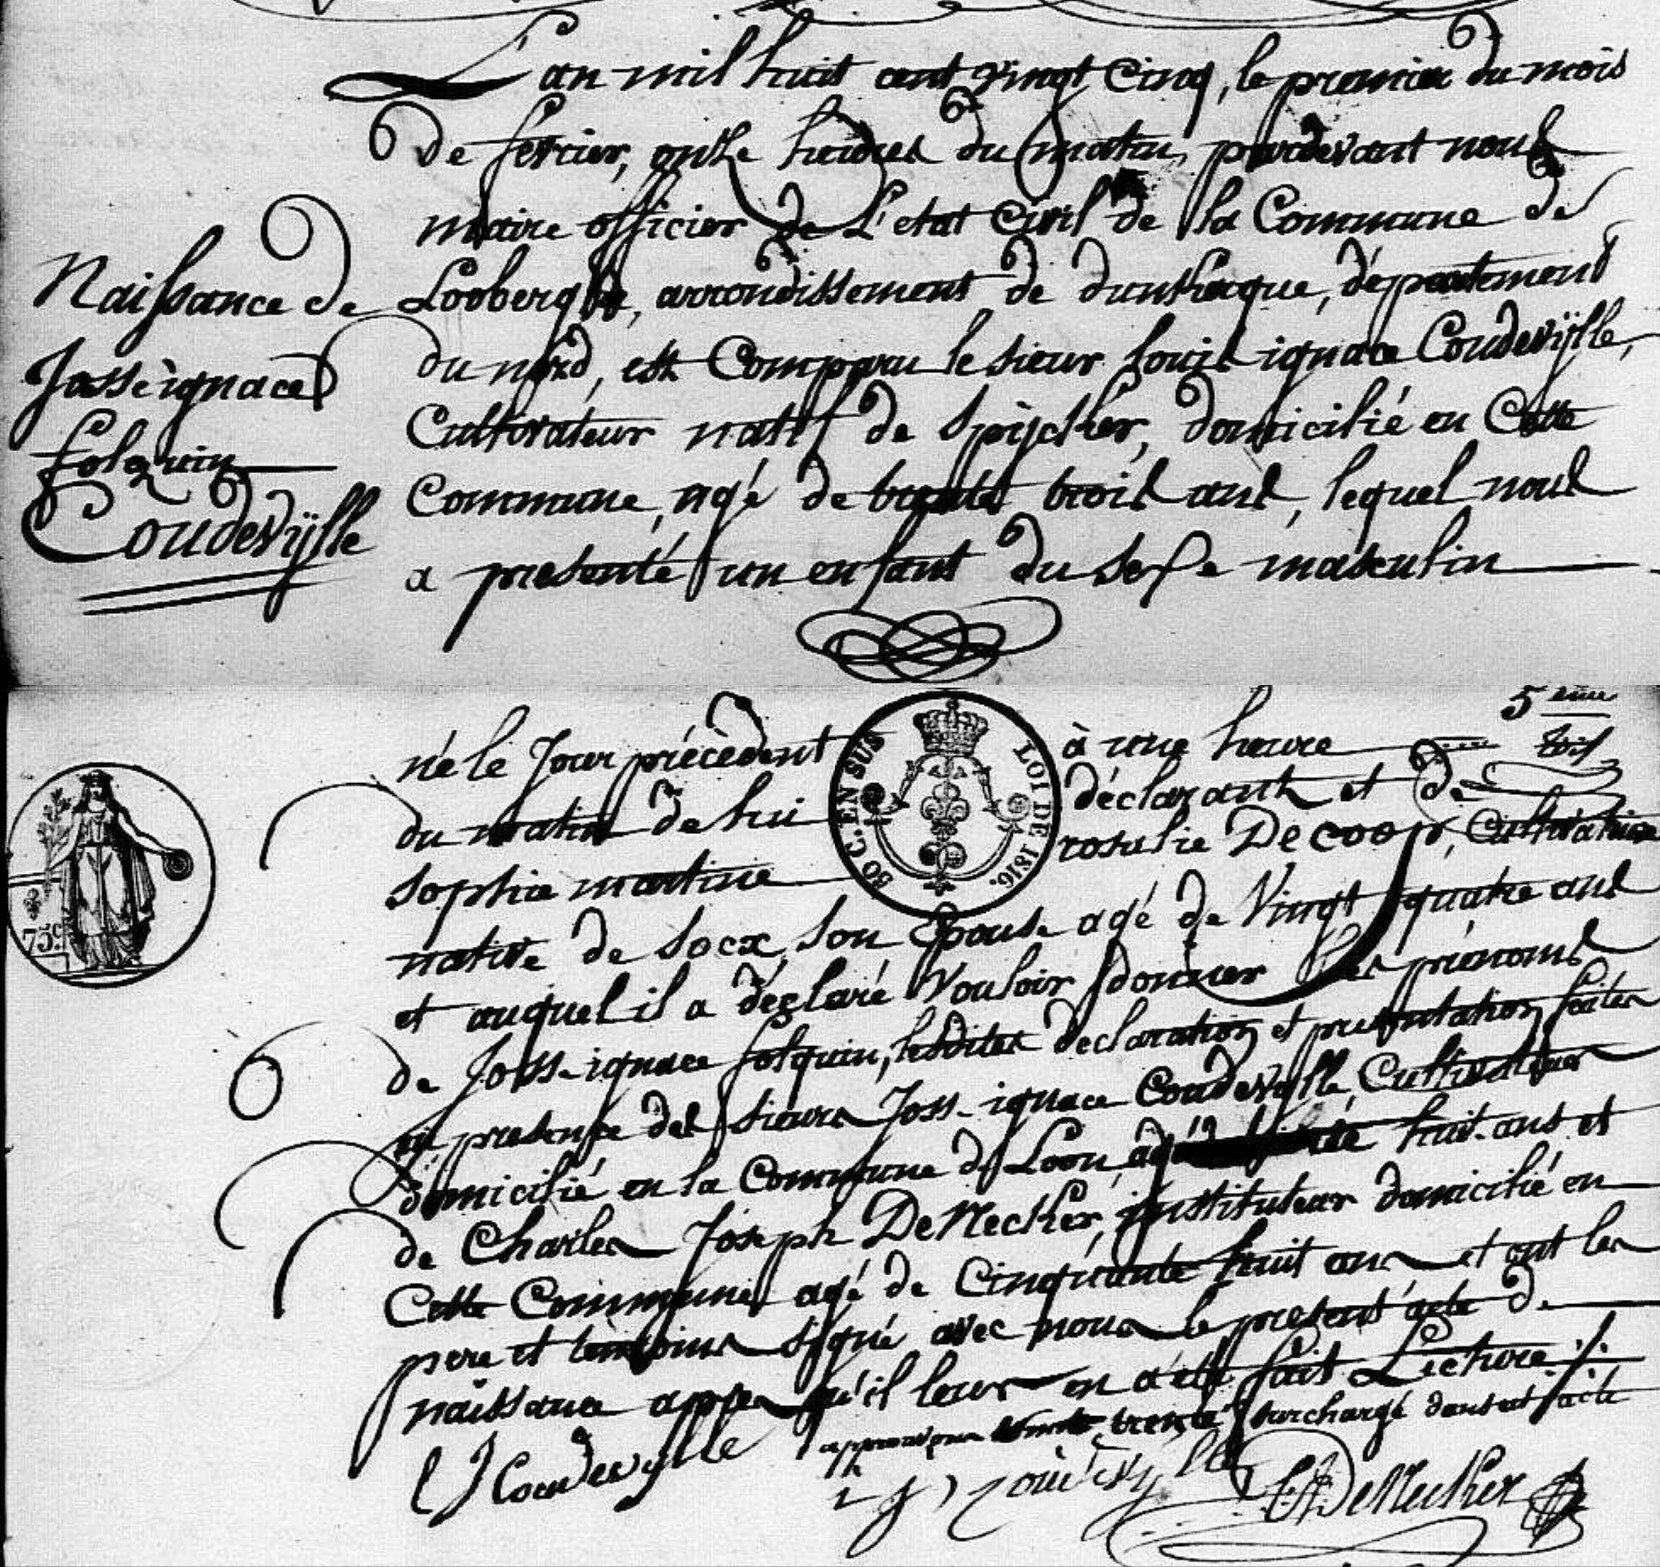 L'an mil huit cent vingt cinq, le premier du mois
de fevrier, onze heures du matin, pardevant nous
maire officier de L'etat Civil de la Commune de
Looberghe, arrondissement de dunkerque, département
du nord, est Comparu le sieur louis ignace Coudevÿlle,
Cultivateur natif de Spÿcker, domicilié en Cette
Commune, agé de trente trois ans, lequel nous
a presenté un enfant du sexe masculin
Naissance de
Josse ignace
folquin
Coudevÿlle
5 eme
né le Jour précèdent à une heure
du matin de lui déclarant et de
sophie martine rosalie De cool, Cultivatrice
native de Socx, son Epouse agé de Vingt quatre ans
et auquel il a déclaré Vouloir donner les prénoms
de Joss-ignace folquin, lesdites declaration et presentation faites
en presence des sieurs Joss-ignace Coudevÿlle, Cultivateur
domicilié en la Commune de Loon, agé huit ans et
de Charles Joseph DeNecker, instituteur domicilié en
Cette Commune agé de Cinquante huit ans et ont les
pere et temoins signé avec nous le present acte de
naissance après qu'il leur en a été fait Lecture ./.
trente surchargé dans cet acte
L J Coudevylle
J J Coudevylle
Ch DeNecker
50 C. EN SUS
LOI DE 1816.
75 c.